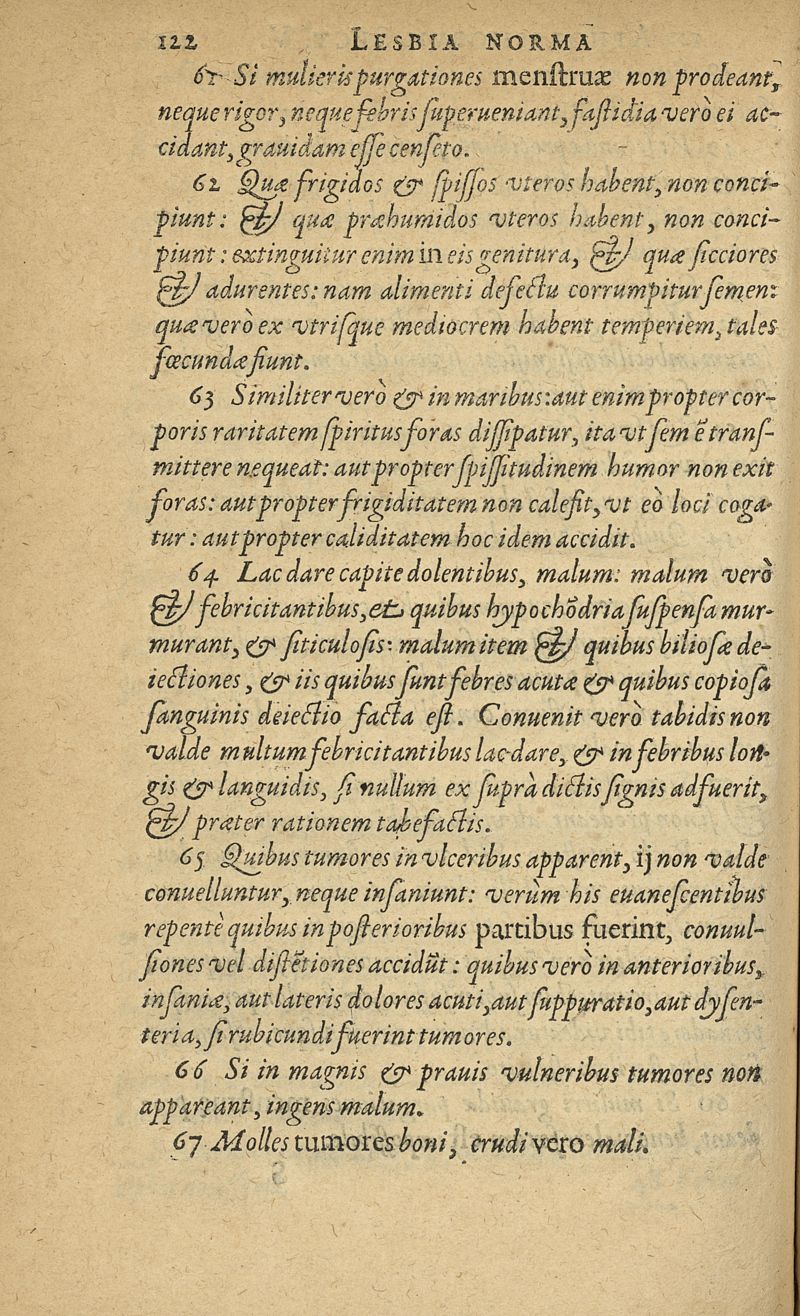 122 LESBIA NORMA
61 Si mulieris purgationes menſtruæ non prodeant,
neque rigor, neque febris ſuperueniant, faſtidia verò ei ac-
cidant, grauidam eſſe cenſeto.
62 Quæ frigidos & ſpiſſos vteros habent, non conci-
piunt: & quæ præhumidos vteros habent, non conci-
piunt: extinguitur enim in eis genitura, & quæ ſicciores
& adurentes: nam alimenti defectu corrumpitur ſemen:
quæ vero ex vtriſque mediocrem habent temperiem, tales
fœcundæ fiunt.
63 Similiter verò & in maribus: aut enim propter cor-
poris raritatem ſpiritus foras diſſipatur, ita vt ſemē tranſ-
mittere nequeat: aut propter ſpiſſitudinem humor non exit
foras: aut propter frigiditatem non calefit, vt eò loci coga-
tur: aut propter caliditatem hoc idem accidit.
64 Lac dare capite dolentibus, malum: malum verò
& febricitantibus, et quibus hypochōdria ſuſpenſa mur-
murant, & ſiticuloſis: malum item & quibus bilioſæ de-
iectiones, & iis quibus ſunt febres acutæ & quibus copioſa
ſanguinis deiectio facta eſt. Conuenit verò tabidis non
valde multum febricitantibus lac dare, & in febribus lon-
gis & languidis, ſi nullum ex ſuprà dictis ſignis adfuerit,
& præter rationem tabefactis.
65 Quibus tumores in vlceribus apparent, ij non valde
conuelluntur, neque inſaniunt: verùm his euaneſcentibus
repentè quibus in poſterioribus partibus fuerint, conuul-
ſiones vel diſtētiones accidūt: quibus verò in anterioribus,
inſaniæ, aut lateris dolores acuti, aut ſuppuratio, aut dyſen-
teria, ſi rubicundi fuerint tumores.
66 Si in magnis & prauis vulneribus tumores non
appareant, ingens malum.
67 Molles tumores boni, crudi vero mali.